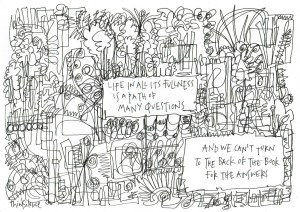 LIFE IN ALL ITS FULLNESS
IS A PATH OF
MANY QUESTIONS
AND WE CAN'T TURN
TO THE BACK OF THE BOOK
FOR THE ANSWERS